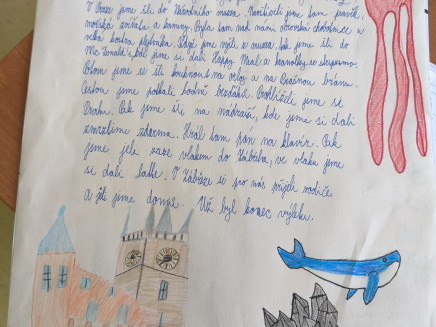 V Praze jsme šli do Národního muzea. Navštívili jsme tam pravěk,
mořská zvířata a kameny. Byla tam nad námi obrovská chobotnice a
velká kostra plejtváka. Když jsme vyšli z muzea, tak jsme šli do
Mc Donald's, kde jsme si dali Happy Meal a hranolky se
Potom jsme se šli kouknout na orloj a na Prašnou bránu.
Cestou jsme potkali hodně bezďáků. Prohlédli jsme si
Prahu. Pak jsme šli na nádraží, kde jsme si dali
zmrzlinu zdarma. Hrál tam pán na klavír. Pak
jsme jeli zase vlakem do Zábřeha, ve vlaku jsme
si dali latte. V Zábřeze si pro nás přijeli rodiče
a jeli jsme domů. Už byl konec výletu.